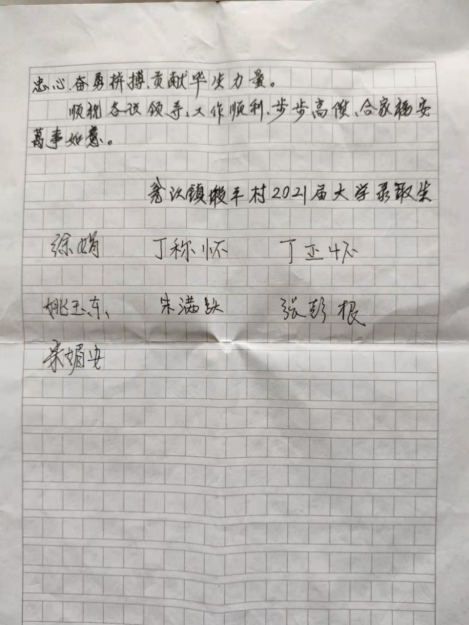 忠心、奋勇拼搏,贡献毕生力量。
顺祝各议领导,工作顺利,步步高俊,合家福安
萬事如意。
镇 村2021届大学录取生
徐娟 丁称怀 丁正怀
姚玉东 朱满跃 张彭根
朱娟安